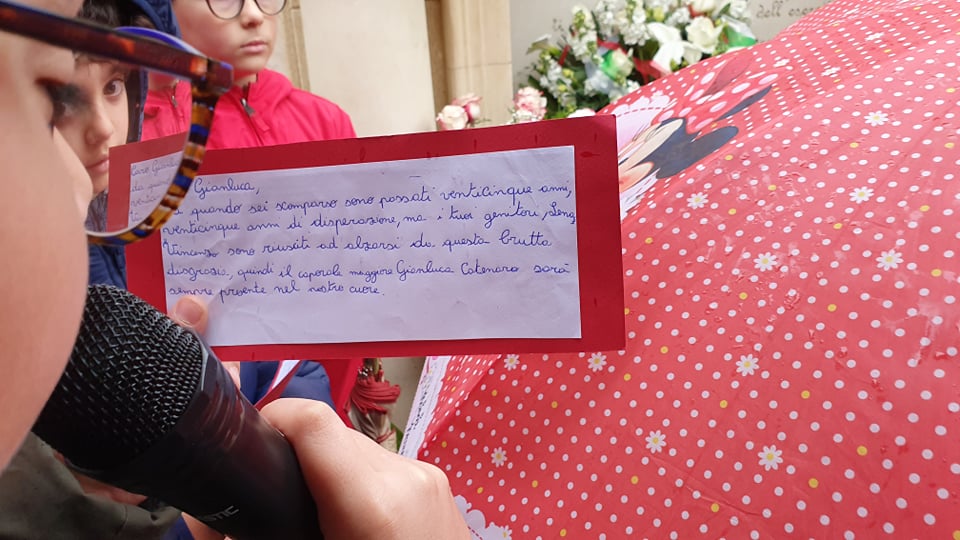 dell'eser
Gianluca,
quando sei scomparso sono passati venticinque anni,
venticinque anni di disperazione, ma i tuoi genitori,
Vincenzo sono riusciti ad alzarsi da questa brutta
disgrazia, quindi il caporale maggiore Gianluca Catenaro sarà
sempre presente nel nostro cuore.